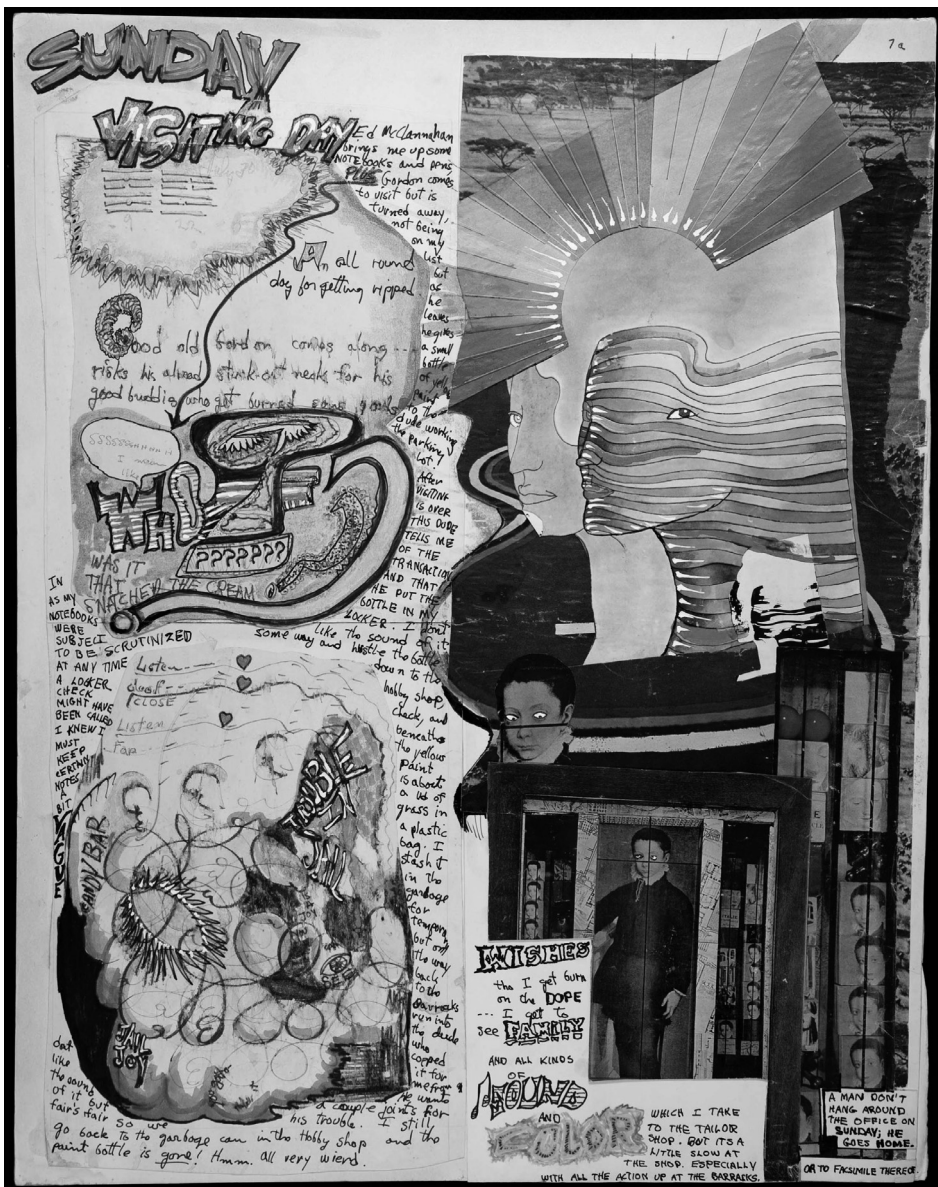 7a
SUNDAY
VISITING DAY
Ed McClannahan
brings me up some
NOTEBOOKS and pens
PLUS Gordon comes
to visit but is
turned away,
not being
on my
list
but
as
he
leaves
he gives
a small
bottle
of yello
paint
to the
dude working
the parking
lot.
After
VISITING
IS OVER
THIS DUDE
TELLS ME
OF THE
TRANSACTION
AND THAT
HE PUT THE
BOTTLE IN MY
LOCKER. I don't
like the sound of it
some way and hustle the bottle
down to the
hobby shop,
check, and
beneath
the yellow
paint
is about
a lid of
grass in
a plastic
bag. I
stash it
in the
garbage
for
temporary
but on
the way
back
to the
barracks
run into
the dude
who
copped
it for
me first
He wants
a couple joints for
his trouble. I still
dont
like
the sound
of it but
fair's fair so we
go back to the garbage can in the hobby shop and the
paint bottle is gone! Hmm. all very wierd.
An all round
day for getting ripped
Good old Gordon comes along
risks his already stuck-out neck for his
good buddie who got burned some goods
SSSSSS
I
WHO
WHO
???????
WAS IT
THAT
SNATCHED THE CREAM
IN
AS MY
NOTEBOOKS
WERE
SUBJECT
TO BE SCRUTINIZED
AT ANY TIME
A LOCKER
CHECK
MIGHT HAVE
BEEN CALLED
I KNEW I
MUST
KEEP
CERTAIN
NOTES
A
BIT
VAGUE
Listen
CLOSE
Listen
For
TROUBLE
IN
JAIL
CANDY BAR
JAIL
JOY
WISHES
tho I get burn
on the DOPE
... I got to
see FAMILY
AND ALL KINDS
OF
SOUND
AND
COLOR
WHICH I TAKE
TO THE TAILOR
SHOP. BUT ITS A
LITTLE SLOW AT
THE SHOP. ESPECIALLY
WITH ALL THE ACTION UP AT THE BARRASKS.
A MAN DON'T
HANG AROUND
THE OFFICE ON
SUNDAY; HE
GOES HOME.
OR TO FACSIMILE THEREOF.